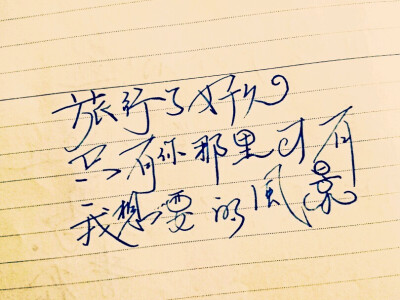 旅行了好久
只有你那里才有
我想要的風景